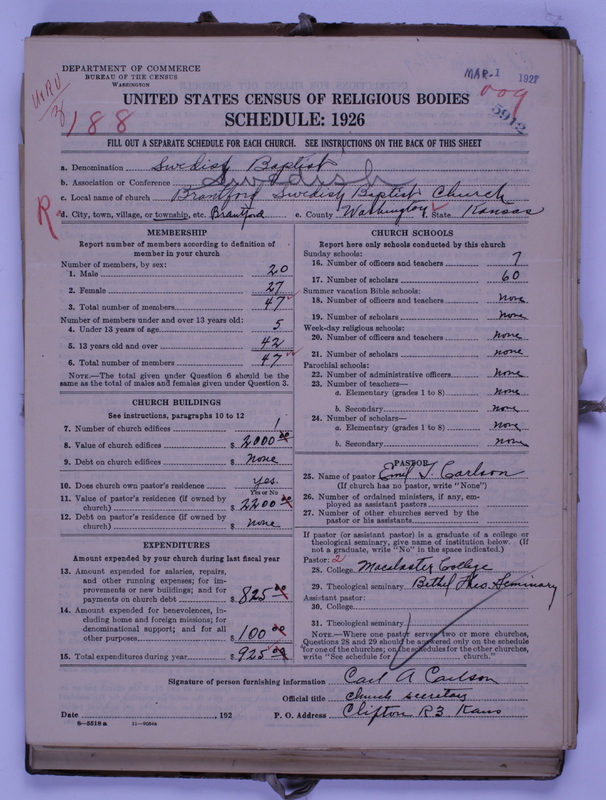 DEPARTMENT OF COMMERCE
BUREAU OF THE CENSUS
WASHINGTON
MAR-1 1927
188
UNITED STATES CENSUS OF RELIGIOUS BODIES
SCHEDULE: 1926
FILL OUT A SEPARATE SCHEDULE FOR EACH CHURCH. SEE INSTRUCTIONS ON THE BACK OF THIS SHEET
a. Denomination Swedish Baptist
b. Association or Conference Swedish
c. Local name of church Brantford Swedish Baptist Church
R d. City, town, village, or township, etc. Brantford e. County Washington f. State Kansas
MEMBERSHIP
Report number of members according to definition of
member in your church
Number of members, by sex:
1. Male 20
2. Female 27
3. Total number of members 47
Number of members under and over 13 years old:
4. Under 13 years of age 5
5. 13 years old and over 42
6. Total number of members 47
NOTE.—The total given under Question 6 should be the
same as the total of males and females given under Question 3.
CHURCH BUILDINGS
See instructions, paragraphs 10 to 12
7. Number of church edifices 1
8. Value of church edifices $ 2000 00
9. Debt on church edifices $ none
10. Does church own pastor's residence yes.
Yes or No
11. Value of pastor's residence (if owned by
church) $ 2200 00
12. Debt on pastor's residence (if owned by
church) $ none
EXPENDITURES
Amount expended by your church during last fiscal year
13. Amount expended for salaries, repairs,
and other running expenses; for im-
provements or new buildings; and for
payments on church debt $ 825 00
14. Amount expended for benevolences, in-
cluding home and foreign missions; for
denominational support; and for all
other purposes $ 100 00
15. Total expenditures during year $ 925 00
CHURCH SCHOOLS
Report here only schools conducted by this church
Sunday schools:
16. Number of officers and teachers 7
17. Number of scholars 60
Summer vacation Bible schools:
18. Number of officers and teachers none
19. Number of scholars none
Week-day religious schools:
20. Number of officers and teachers none
21. Number of scholars none
Parochial schools:
22. Number of administrative officers none
23. Number of teachers—
a. Elementary (grades 1 to 8) none
b. Secondary none
24. Number of scholars—
a. Elementary (grades 1 to 8) none
b. Secondary none
PASTOR
25. Name of pastor Emil T. Carlson
(If church has no pastor, write "None")
26. Number of ordained ministers, if any, em-
ployed as assistant pastors
27. Number of other churches served by the
pastor or his assistants
If pastor (or assistant pastor) is a graduate of a college or
theological seminary, give name of institution below. (If
not a graduate, write "No" in the space indicated.)
Pastor: 2
28. College Macalaster College
29. Theological seminary Bethel Theo. Seminary
Assistant pastor:
30. College
31. Theological seminary
NOTE.—Where one pastor serves two or more churches,
Questions 28 and 29 should be answered only on the schedule
for one of the churches; on the schedules for the other churches,
write "See schedule for church."
Signature of person furnishing information Carl A Carlson
Official title church secretary
Date , 192 P. O. Address Clifton R3 Kans
8-5518a 11-9084a